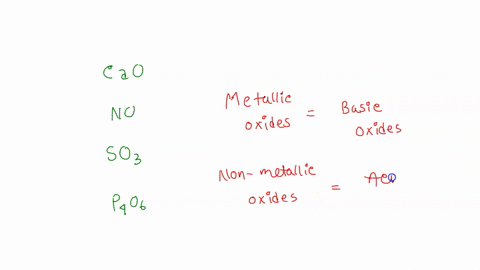 CaO
NO
SO3
P4O6
Metallic
oxides = Basic
oxides
Non-metallic
oxides =